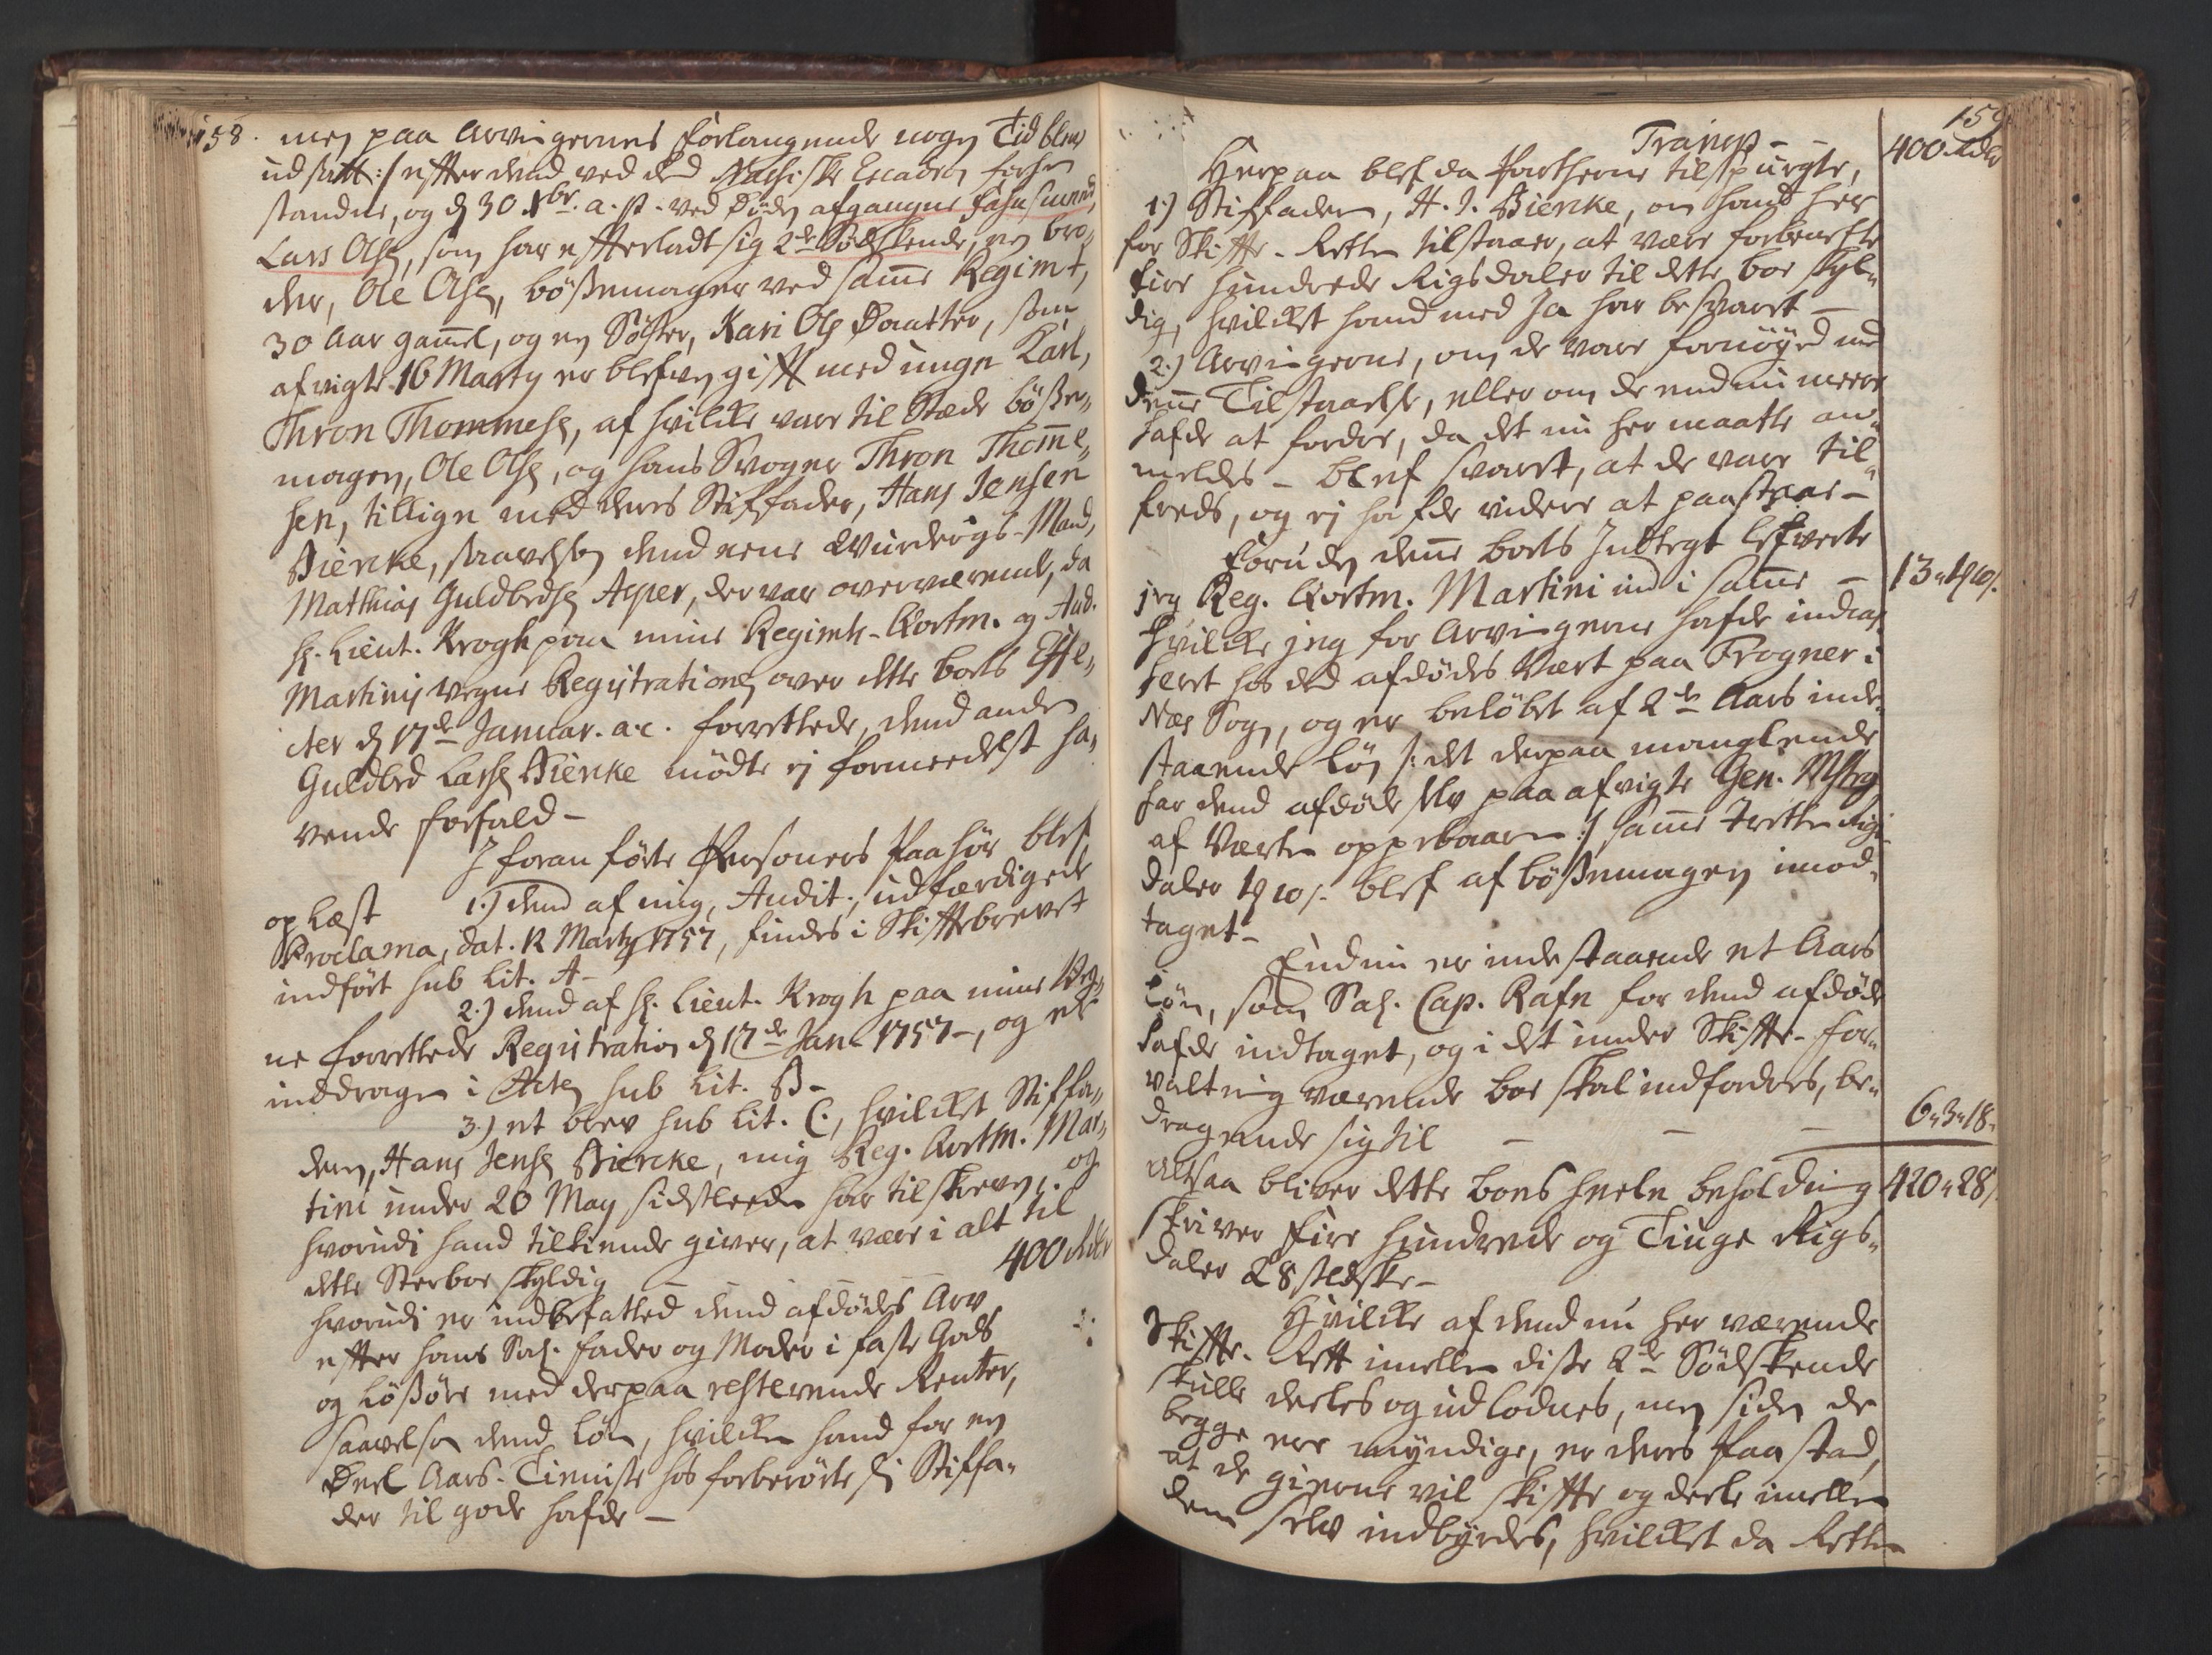 158. men paa Arvingernes forlangende nogen Tid blev
udsatt :/ effter dend ved det Næssiske Escadron forhen
standne, og d 30 Xbr. a. p. ved Døden afgangne Fahnsmed,
Lars Olss, som har effterladt sig 2de Sødskende, en bro„
der, Ole Olss, bøssemager ved samme Regimt,
30 Aar gammel, og en Søster, Kari Ols Daatter, som
afvigte 16 Marty er blefven gift med unge Karl,
Thron Thommess, af hvilke vare til Stæde bøsse„
mageren, Ole Olss, og hans Svoger Thron Thomme„
sen, tillige med deres Stiffader, Hans Jensen
Biercke, saavelsom dend eene Wurderings-Mand,
Mathias Guldbrdss Asper, der var overværende, da
H. Lieut. Krogh paa mine Regimts-Qvartm. og Aud.
Martinis vegne Registrationen over dette boets Effe„
cter d 17de Januar. a.c. forrettede, dend anden
Guldbrd Larss Biercke mødte ej formeedelst ha„
vende forfald –
I foran førte Personers Paahør blef
oplæst 1.) dend af mig, Audit., udfærdigede
Proclama, dat. 12 Marty 1757, findes i Skiftebrevet
indført sub Lit. A –
2.) dend af H. Lieut. Krogh paa mine Veg„
ne forrettede Registration d 17de Jan. 1757 –, og er
inddragen i Acten sub Lit. B –
3.) et brev sub Lit. C., hvilket Stiffa„
deren, Hans Jenss Biercke, mig Reg. Qvartm. Mar„
tini under 20 May sidstleeden har tilskreven, og
hvorudi hand tilkiende giver, at være i alt til
dette Sterboe skyldig – – – 400 Rdlr
hvorudi er indbefatted dend afdødes Arv
effter hans Sal. Fader og Moder i faste Gods
og Løssøre med derpaa resterende Renter,
saavelsom dend Løn, hvilken hand for en
Deel Aars-Tieniste hos forberørte sin Stiffa„
der til gode hafde –
159
Transp – – 400 Rdlr
Herpaa blef da Partherne tilspurgte,
1.) Stiffaderen, H. J. Biercke, om hand her
for Skiffte-Retten tilstaaer, at være forbenefnte
fire hundrede Rigsdaler til dette boe skyl„
dig, hvilket hand med Ja har besvaret –
2.) Arvingerne, om de vare fornøyed med
denne Tilstaaelse, eller om de endnu meere
hafde at fordre, da det nu her maatte an„
meldes – blef svaret, at de vare til„
freds, og ej hafde videre at paastaae –
Foruden denne boets Indtegt lefverte
jeg Reg. Qvartm. Martini ind i samme – 13„1 10 s.
hvilke jeg for Arvingerne hafde indcas„
seret hos ded afdødes Vært paa Frogner i
Næs Sogn, og er beløbet af 2de Aars inde„
staaende Løn /: det derpaa manglende
har dend afdøde selv paa afvigte Gen. Mstrg
af Værten oppebaaren :/ samme tretten Rigs„
daler 1 10 s. blef af bøssemageren imod„
taget –
Endnu er indestaaende et Aars
Løn, som Sal. Cap. Rafn for dend afdøde
hafde indtaget, og i det under Skiffte-for„
valtning værende boe skal indfordres, be„
dragende sig til – – – 6„3„18.
Altsaa bliver dette boes heele beholdning 420„ 28 s.
skriver fire hundrede og Tiuge Rigs„
daler 28 skilling –
Hvilke af dend nu her værende
Skiffte-Rett imellem disse 2de Sødskende
skulle deeles og udloddes, men siden de
begge ere myndige, er deres Paastand,
at de gierne vil skiffte og deele imellem
dem selv indbyrdes, hvilket da Retten